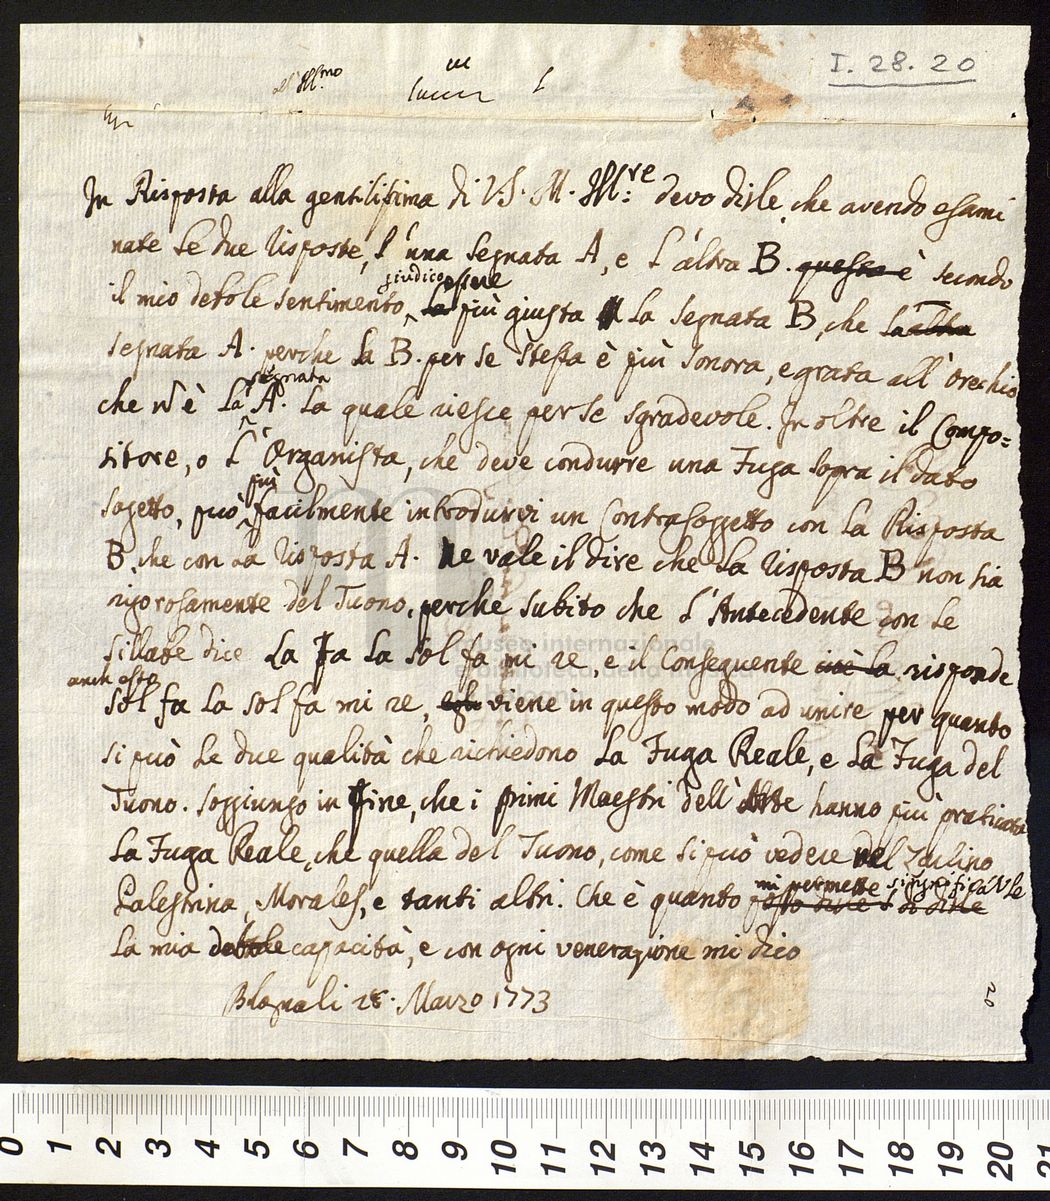 I. 28. 20
all' Ill.mo
In Risposta alla gentilissima di V.S. M. Ill:re devo dirle, che avendo esami
nate le due risposte, l'una segnata A, e l'altra B. questa è secondo
giudico essere
il mio debole sentimento, la più giusta la segnata B, che la altra
segnata A. perche la B. per se stessa è più sonora, e grata all' orechio
segnata
che n è la A. la quale riesce per se sgradevole. In oltre il Compo=
sitore, o l'Organista, che deve condurre una Fuga sopra il dato
più
sogetto, può facilmente introdurvi un Contrasoggetto con la Risposta
B, che con la risposta A. Ne vale il dire che la risposta B non sia
rigorosamente del Tuono, perche subito che l'Antecedente con le
sillabe dice La Fa La Sol fa mi re, e il Conseguente cioè la risponde
anch esso
sol fa la sol fa mi re, viene in questo modo ad unire per quanto
si può le due qualità che richiedono la Fuga Reale, e la Fuga del
Tuono. Soggiungo in fine, che i primi Maestri dell' Arte hanno più praticata
la Fuga Reale, che quella del Tuono, come si può vedere nel Zarlino
mi permette significarle
Palestrina, Morales, e tanti altri. Che è quanto posso dirle
la mia debole capacità, e con ogni venerazione mi dico
Blogna li 28. Marzo 1773
20
museo internazionale
e biblioteca della musica
di bologna
0 1 2 3 4 5 6 7 8 9 10 11 12 13 14 15 16 17 18 19 20 21